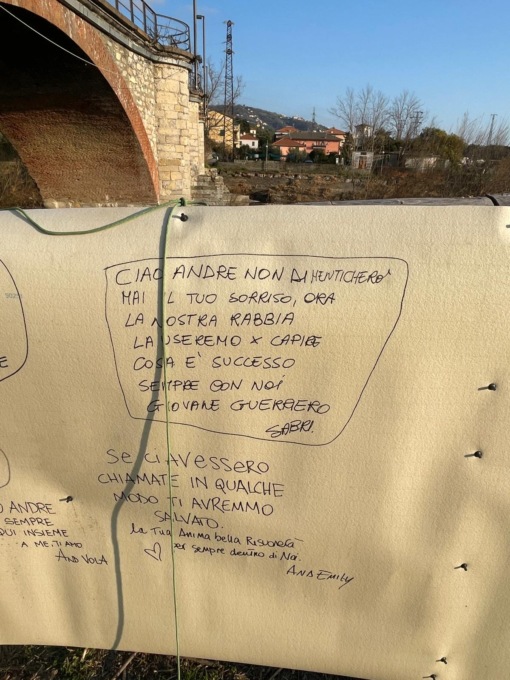 CIAO ANDRE NON DIMENTICHERO'
MAI IL TUO SORRISO, ORA
LA NOSTRA RABBIA
LA USEREMO X CAPIRE
COSA E' SUCCESSO
SEMPRE CON NOI
GIOVANE GUERRERO
SABRI.
Se ci AVESSERO
CHIAMATE IN QUALCHE
MODO TI AVREMMO
SALVATO.
La Tua Anima bella Risuonerà
per sempre dentro di Noi.
ANA Emily
ANDRE
SEMPRE
QUI INSIEME
A ME. TI AMO